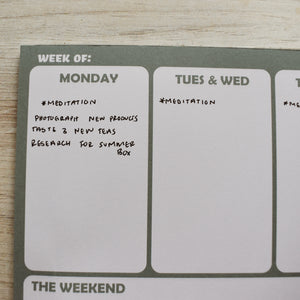 WEEK OF:
MONDAY
#MEDITATION
PHOTOGRAPH NEW PRODUCTS
TASTE 3 NEW TEAS
RESEARCH FOR SUMMER
BOX
TUES & WED
#MEDITATION
T
#ME
THE WEEKEND